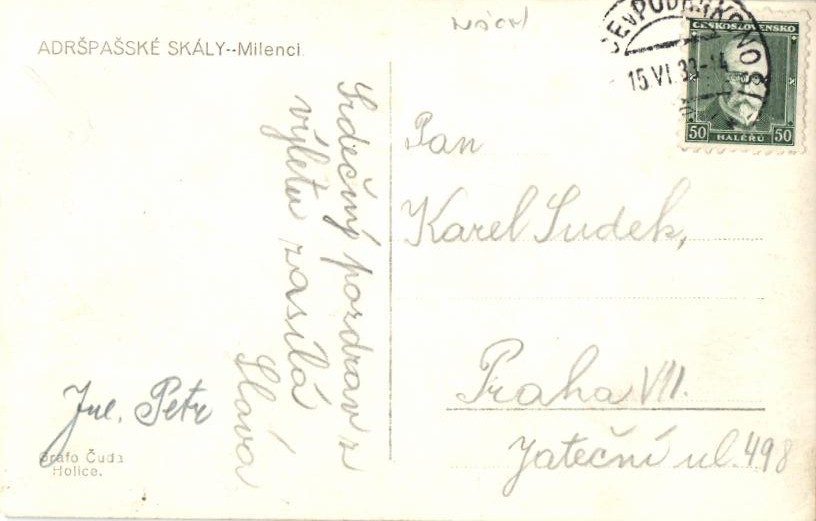 ADRŠPAŠSKÉ SKÁLY--Milenci.
Srdečný pozdrav z
výletu zasílá
Slává
Jul. Petr
Grafo Čuda
Holice.
ČESKOSLOVENSKO
50 HALÉŘŮ 50
15.VI.33-14
Pan
Karel Sudek,
Praha VII.
Jateční ul. 498